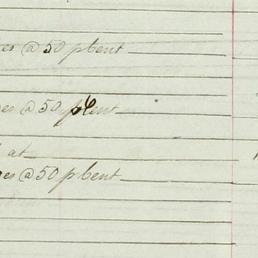 es @ 50 p Cent
es @ 50 p Cent
at
es @ 50 p Cent